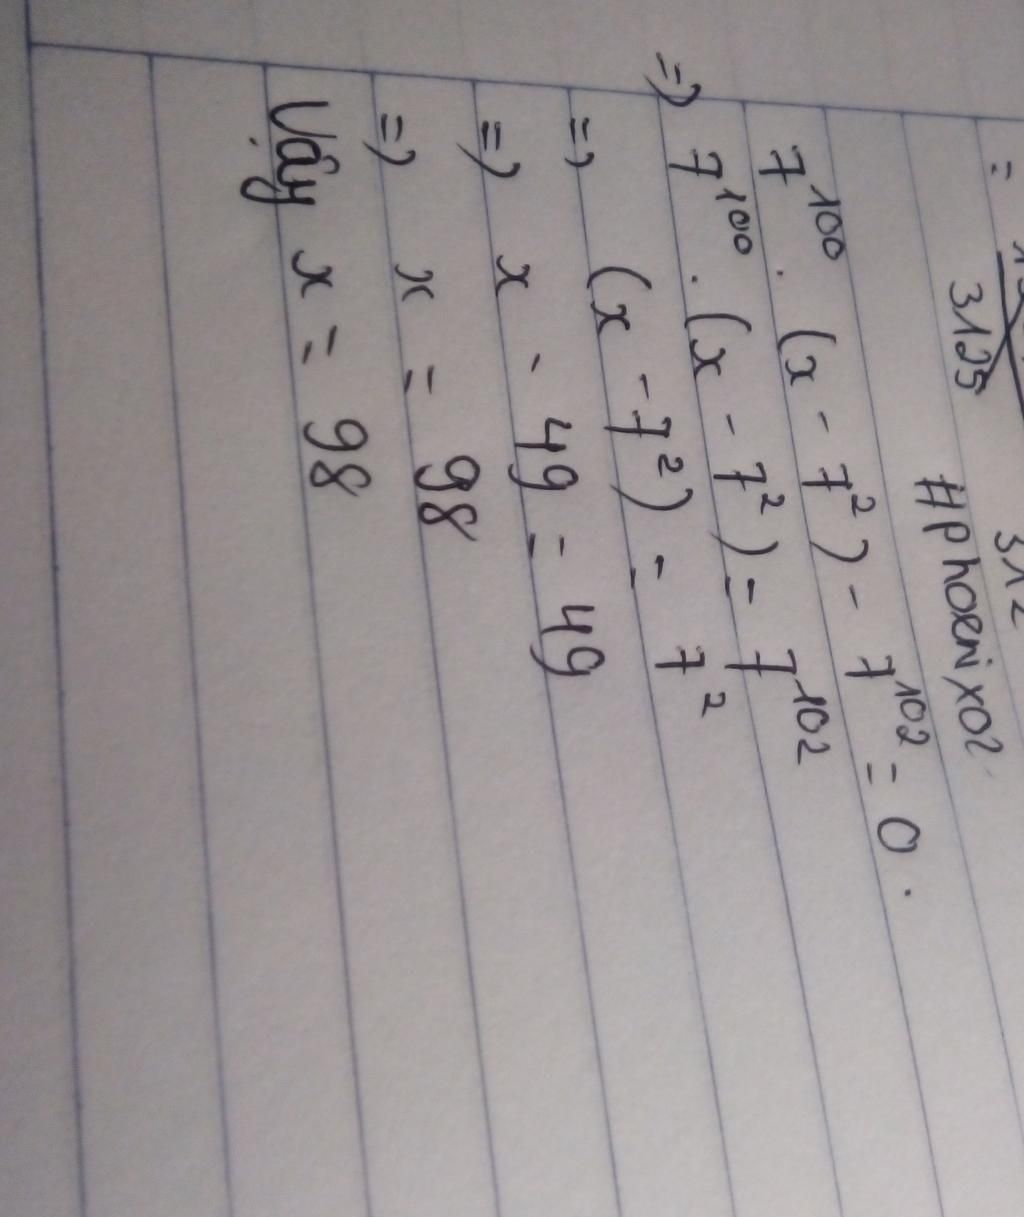 =
3125
312
#Phoenix02
7^100 . (x - 7^2) - 7^102 = 0.
=> 7^100 . (x - 7^2) = 7^102
=> (x - 7^2) = 7^2
=> x - 49 = 49
=> x = 98
Vậy x = 98